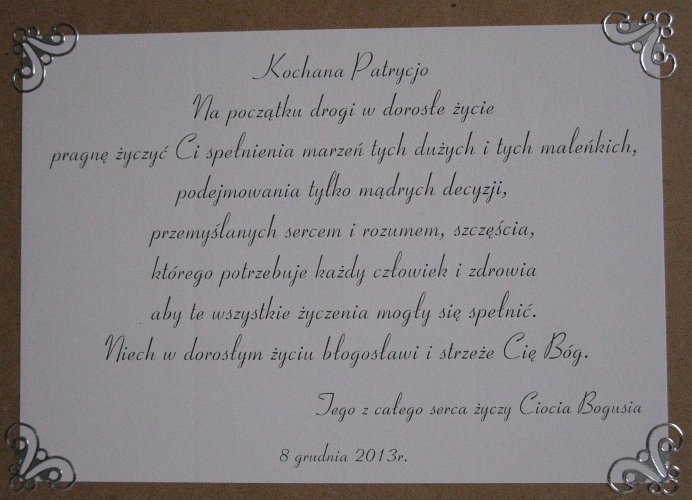 Kochana Patrycjo
Na początku drogi w dorosłe życie
pragnę życzyć Ci spełnienia marzeń tych dużych i tych maleńkich,
podejmowania tylko mądrych decyzji,
przemyślanych sercem i rozumem, szczęścia,
którego potrzebuje każdy człowiek i zdrowia
aby te wszystkie życzenia mogły się spełnić.
Niech w dorosłym życiu błogosławi i strzeże Cię Bóg.
Tego z całego serca życzy Ciocia Bogusia
8 grudnia 2013r.